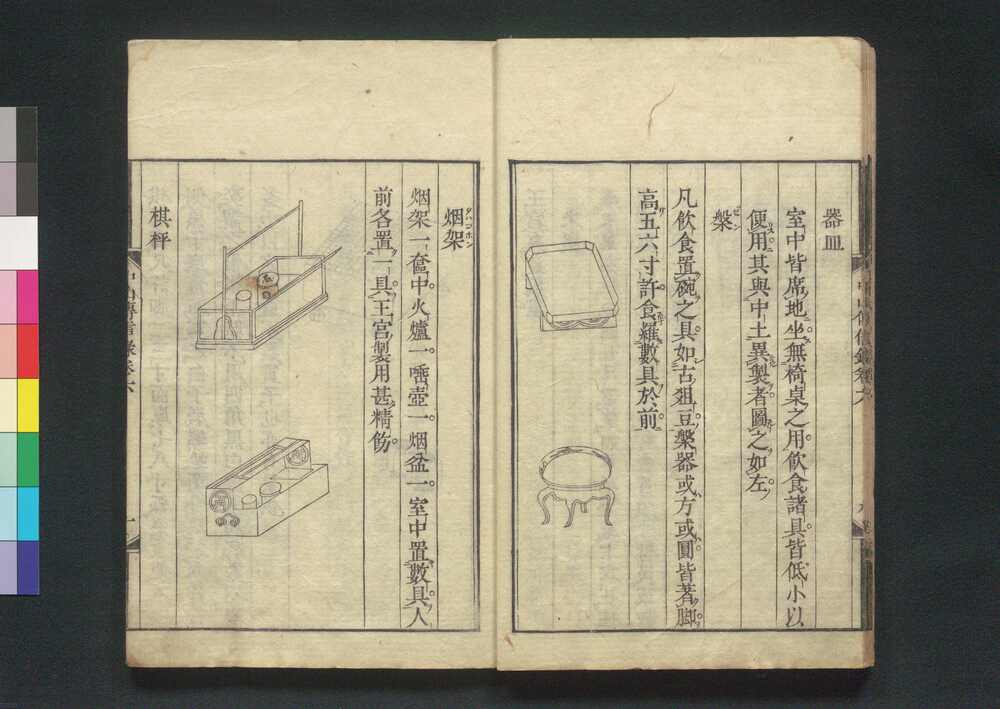 器皿
室中皆席地坐無椅桌之用飲食諸具皆低小以
便用其與中土異製者圖之如左
槃
ゼン
凡飲食置碗之具如古俎豆槃器或方或圓皆著脚
高五六寸許食羅數具於前
烟架
タバコボン
烟架一奩中火爐一唾壺一烟盆一室中置數具人
前各置一具王宮製用甚精飭
棋枰
中山傳信錄卷六